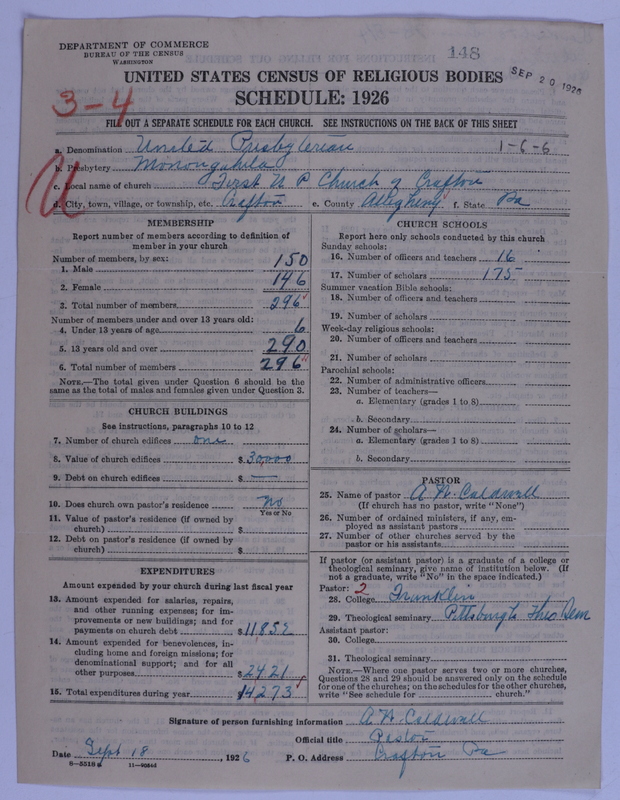 DEPARTMENT OF COMMERCE
BUREAU OF THE CENSUS
WASHINGTON
148
SEP 20 1926
UNITED STATES CENSUS OF RELIGIOUS BODIES
SCHEDULE: 1926
3-4
FILL OUT A SEPARATE SCHEDULE FOR EACH CHURCH. SEE INSTRUCTIONS ON THE BACK OF THIS SHEET
a. Denomination United Presbyterian 1-6-6
b. Presbytery Monongahela
c. Local name of church First U P Church of Crafton
d. City, town, village, or township, etc. Crafton e. County Allegheny f. State Pa
MEMBERSHIP
Report number of members according to definition of
member in your church
Number of members, by sex:
1. Male 150
2. Female 146
3. Total number of members 296
Number of members under and over 13 years old:
4. Under 13 years of age 6
5. 13 years old and over 290
6. Total number of members 296
NOTE.—The total given under Question 6 should be
same as the total of males and females given under Question 3.
CHURCH BUILDINGS
See instructions, paragraphs 10 to 12
7. Number of church edifices one
8. Value of church edifices $ 30,000
9. Debt on church edifices $ —
10. Does church own pastor's residence no
Yes or No
11. Value of pastor's residence (if owned by
church) $
12. Debt on pastor's residence (if owned by
church) $
EXPENDITURES
Amount expended by your church during last fiscal year
13. Amount expended for salaries, repairs,
and other running expenses; for im-
provements or new buildings; and for
payments on church debt $ 11852
14. Amount expended for benevolences, in-
cluding home and foreign missions; for
denominational support; and for all
other purposes $ 2421
15. Total expenditures during year 14273
CHURCH SCHOOLS
Report here only schools conducted by this church
Sunday schools:
16. Number of officers and teachers 16
17. Number of scholars 175
Summer vacation Bible schools:
18. Number of officers and teachers
19. Number of scholars
Week-day religious schools:
20. Number of officers and teachers
21. Number of scholars
Parochial schools:
22. Number of administrative officers
23. Number of teachers—
a. Elementary (grades 1 to 8)
b. Secondary
24. Number of scholars—
a. Elementary (grades 1 to 8)
b. Secondary
PASTOR
25. Name of pastor A. W. Caldwell
(If church has no pastor, write "None")
26. Number of ordained ministers, if any, em-
ployed as assistant pastors
27. Number of other churches served by the
pastor or his assistants
If pastor (or assistant pastor) is a graduate of a college or
theological seminary, give name of institution below. (If
not a graduate, write "No" in the space indicated.)
Pastor: 2
28. College Franklin
29. Theological seminary Pittsburgh Theo Sem
Assistant pastor:
30. College
31. Theological seminary
NOTE.—Where one pastor serves two or more churches,
Questions 28 and 29 should be answered only on the schedule
for one of the churches; on the schedules for the other churches,
write "See schedule for church."
Signature of person furnishing information A. W. Caldwell
Official title Pastor
Date Sept 18, 1926 P. O. Address Crafton Pa
8-5518 a